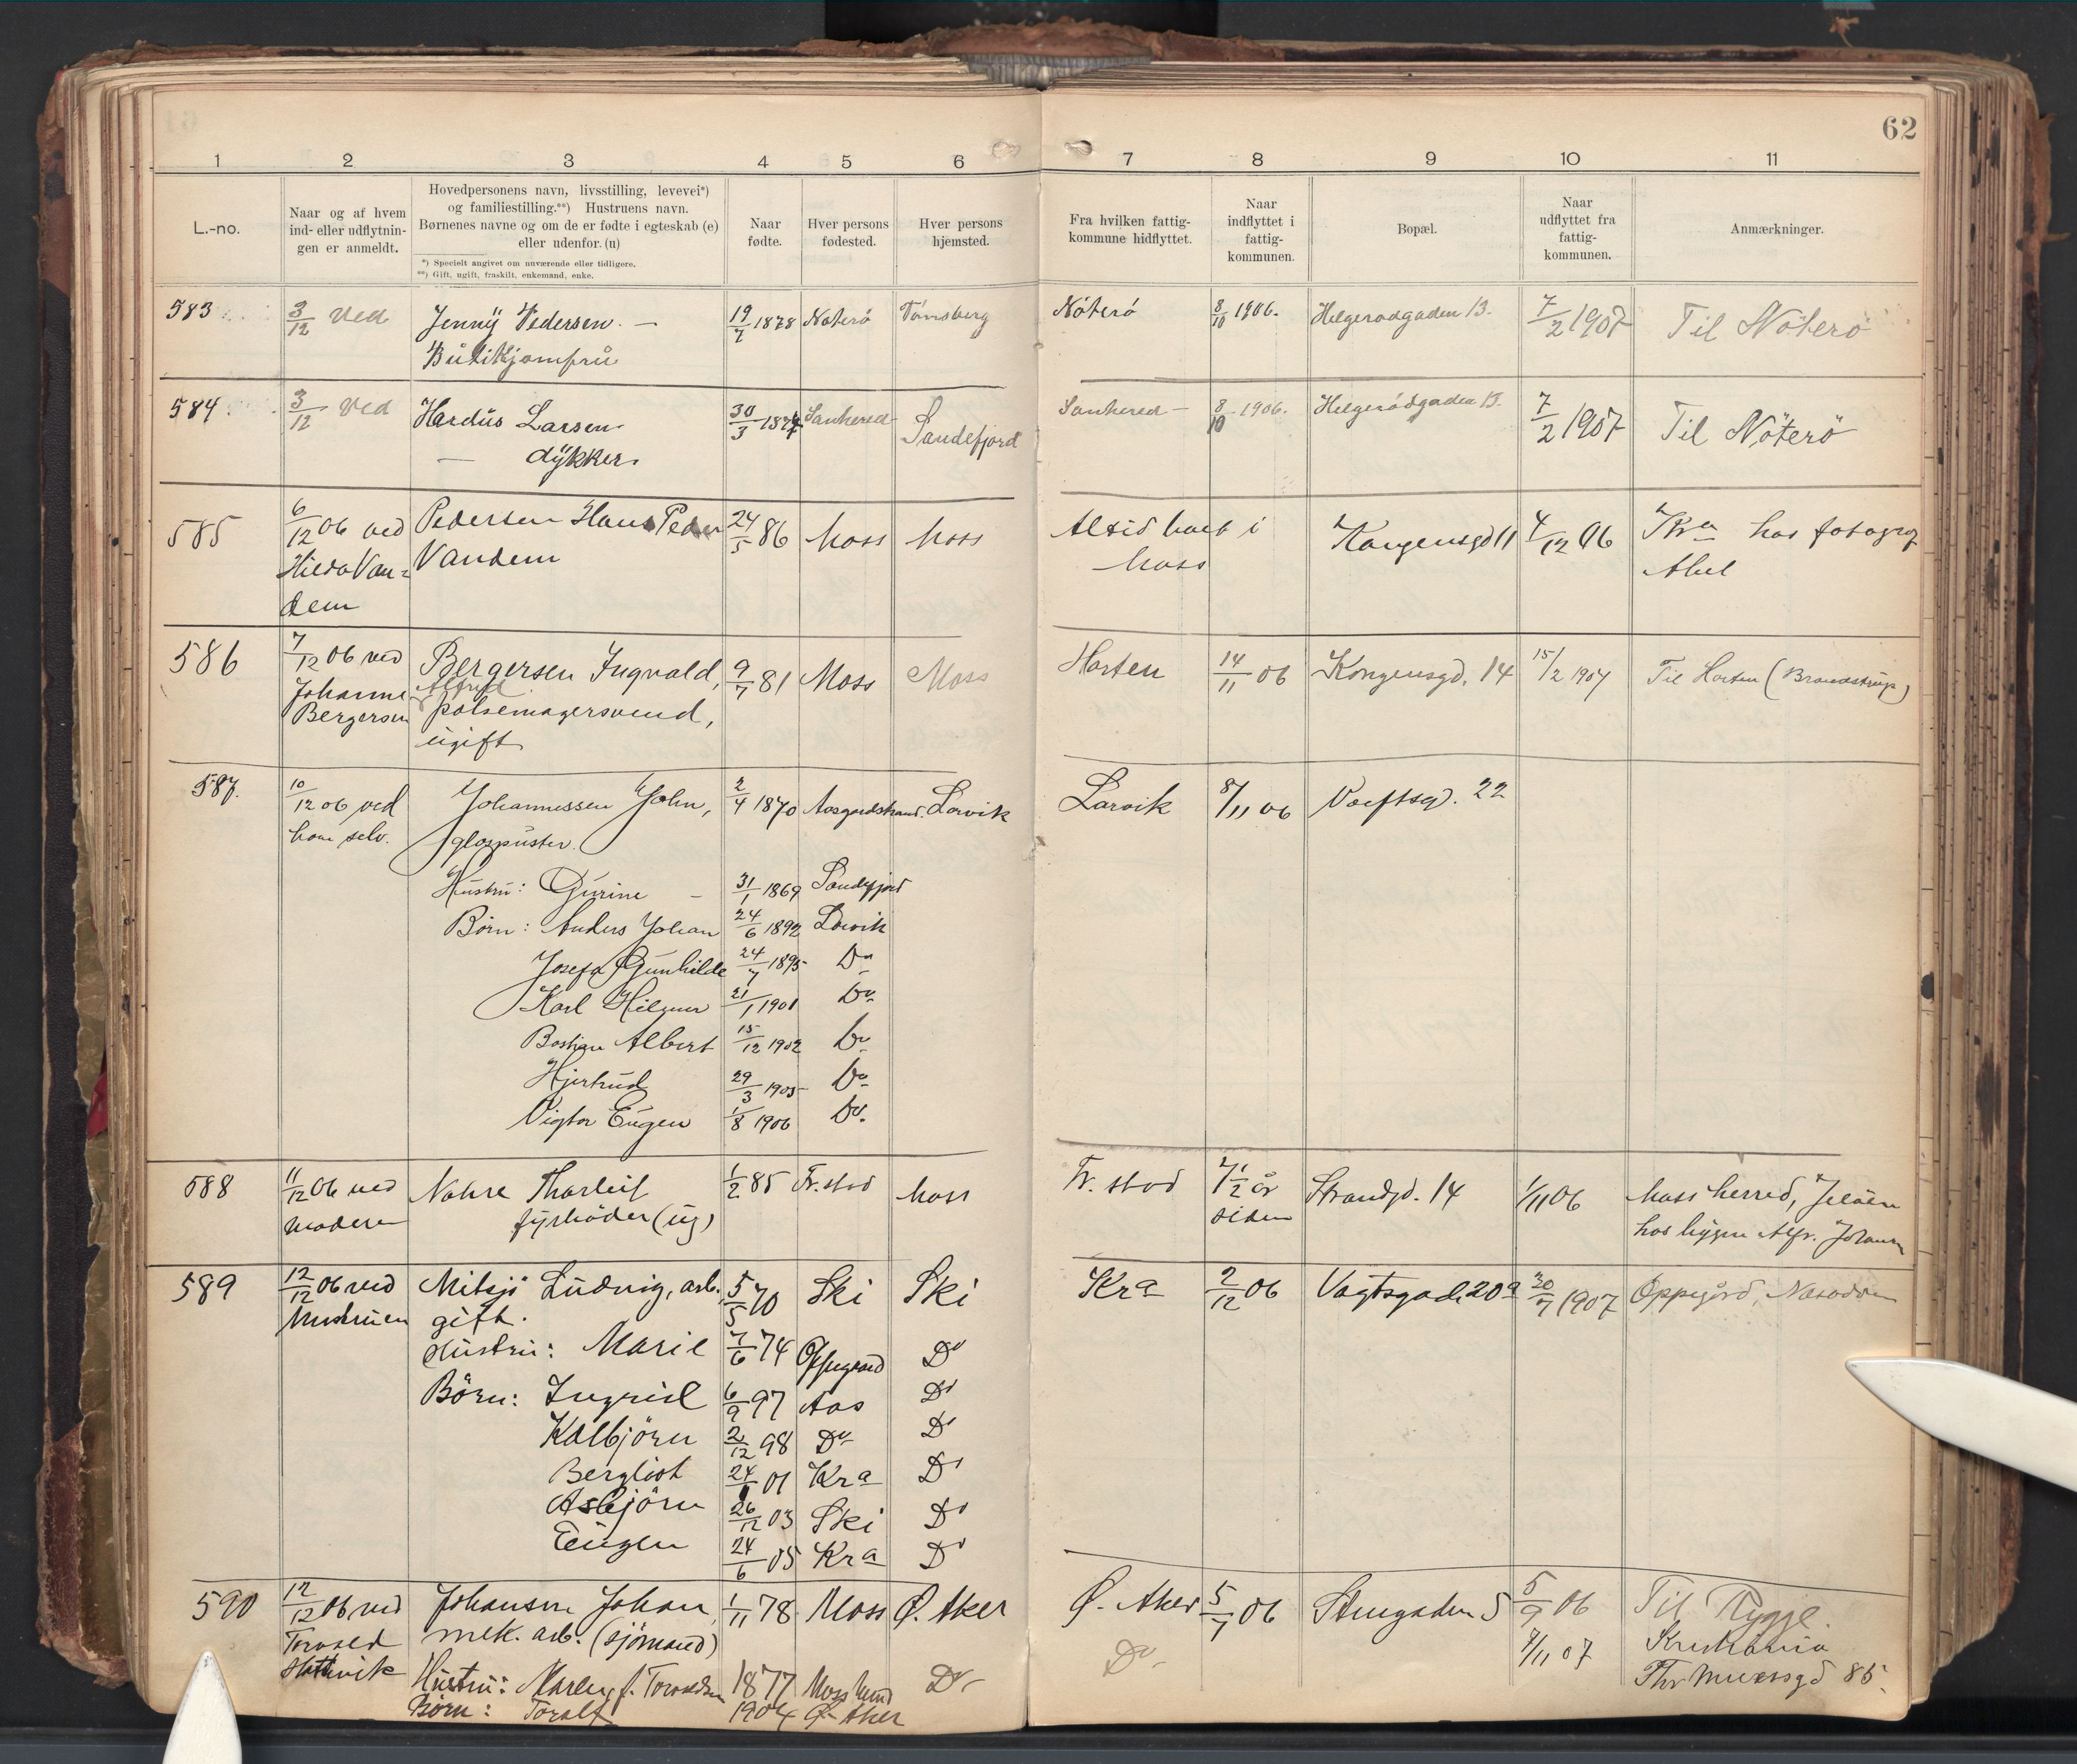 62
1 2 3 4 5 6 7 8 9 10 11
L.-no.
Naar og af hvem
ind- eller udflytnin-
gen er anmeldt.
Hovedpersonens navn, livsstilling, levevei*)
og familiestilling.**) Hustruens navn.
Børnenes navne og om de er fødte i egteskab (e)
eller udenfor. (u)
*) Specielt angivet om nuværende eller tidligere.
**) Gift, ugift, fraskilt, enkemand, enke.
Naar
fødte.
Hver persons
fødested.
Hver persons
hjemsted.
Fra hvilken fattig-
kommune hidflyttet.
Naar
indflyttet i
fattig-
kommunen.
Bopæl.
Naar
udflyttet fra
fattig-
kommunen.
Anmærkninger.
583 3/12 Ved Jenny Pedersen. — 19/7 1878 Nøterø Tønsberg Nøterø 8/10 1906. Helgerødgaden 13. 7/2 1907 Til Nøterø
Butikjomfru
584 3/12 Ved Hardus Larsen 30/3 Sanhered Sandefjord Sanhered — 8/10 1906. Helgerødgaden 13. 7/2 1907 Til Nøterø
— dykker.
585 6/12 06 ved Pedersen Hans Peder 24/5 86 Moss Moss Altid boet i Kongensgd 11 4/12 06 Kra hos fotograf
Hilda Van= Vandem Moss Abel
dem
586 7/12 06 ved Bergersen Ingvald, 9/7 81 Moss Moss Horten 14/11 06 Kongensgd. 14 15/2 1907 Til Horten (Brandstrup)
Johanne Alfred
Bergersen pølsemagersvend,
ugift
587. 10/12 06 ved Johannessen John, 2/4 1870 Aasgardstrand. Larvik Larvik 8/11 06 Værftsgd. 22
ham selv. glaspuster.
Hustru: Gurine — 31/1 1869 Sandefjord
Børn: Anders Johan 24/6 1892 Larvik
Josefa Gunhilde 24/7 1895 Do
Karl Hilmar 21/1 1901 Do
Bastian Albert 15/12 1902 Do
Hjertrud 29/3 1905 Do
Vigtor Eugen 1/8 1906 Do.
588 11/12 06 ved Nohre Thorleif 1/2 85 Fr.stad Moss Fr. stad 7 1/2 år Strandgd. 14 1/11 06 Moss herred, Jeløen
moderen fyrbøder (ug) siden hos Alfr. Johansen
589 12/12 06 ved Mitsjø Ludvig, arb. 5/5 70 Ski Ski Kra 2/12 06 Vagtsgade 20a 30/7 1907 Oppegård, Nesodden
Hustruen gift.
Hustru: Marie 7/6 74 Oppegaard Do
Børn: Ingrid 6/9 97 Aas Do
Kolbjørn 2/12 98 Do Do
Bergliot 24/ 01 Kra Do
Asbjørn 26/12 03 Ski Do
Eugen 24/6 05 Kra Do
590 12/12 06 ved Johansen Johan 1/11 78 Moss Ø. Aker Ø. Aker 5/7 06 Stengaden 5 5/9 06 Til Rygge
Torvald mek. arb. (sjömand) Do 9/11 07 Kristiania
Hustru: 1877 Moss Do Thv Meyersgd 85.
Børn: Toralf 1904 Ø. Aker